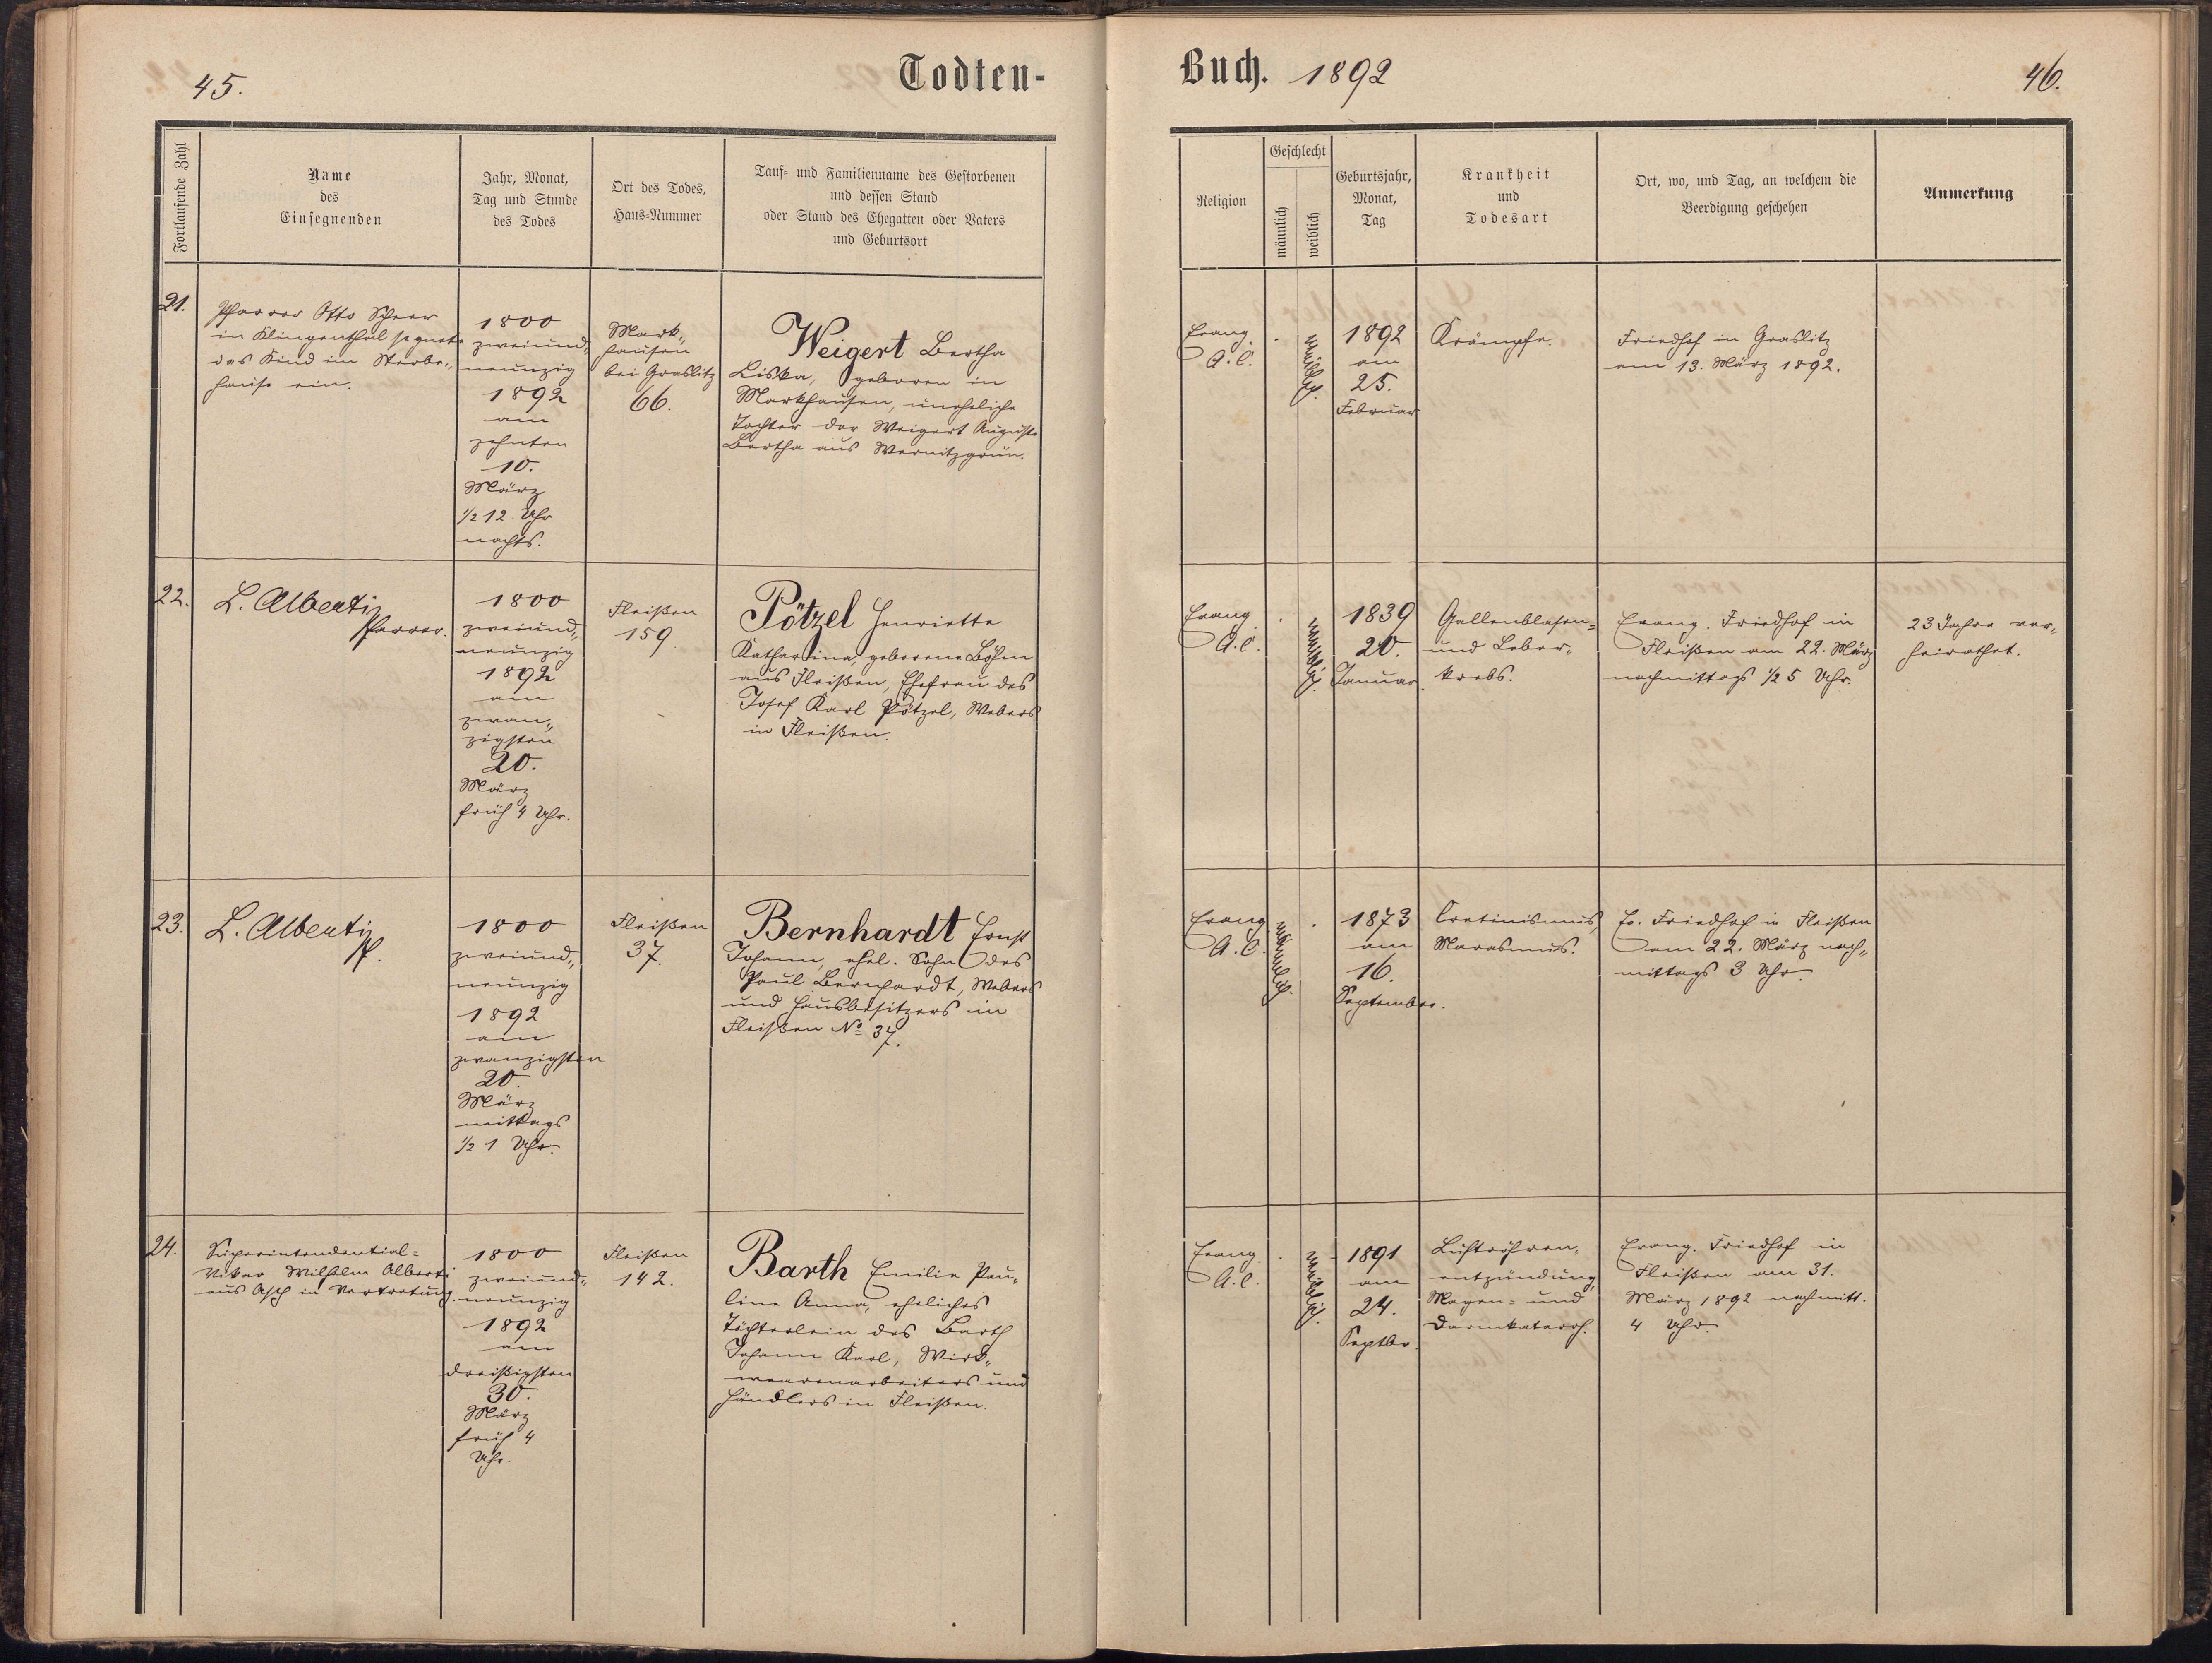 45.
Todten-
Fortlaufende Zahl
Name
des
Einsegnenden
Jahr, Monat,
Tag und Stunde
des Todes
Ort des Todes,
Haus-Nummer
Tauf- und Familienname des Gestorbenen
und dessen Stand
oder Stand des Ehegatten oder Vaters
und Geburtsort
21.
Pfarrer Otto Scheer
in Klingenthal segnete
das Kind im Sterbe„
hause ein.
1800
zweiund„
neunzig
1892
am
zehnten
10.
März
1/2 12 Uhr
nachts.
Mark„
hausen
bei Graslitz
66.
Weigert Bertha
Liska, geboren in
Markhausen, uneheliche
Tochter der Weigert Auguste
Bertha aus Wernitzgrün.
22.
L. Alberti,
Pfarrer.
1800
zweiund„
neunzig
1892
am
zwan„
zigsten
20.
März
früh 4 Uhr.
Fleißen
159
Pötzel Henriette
Katharina, geborene Böhm
aus Fleißen, Ehefrau des
Josef Karl Pötzel, Webers
in Fleißen.
23.
L. Alberti,
Pf.
1800
zweiund„
neunzig
1892
am
zwanzigsten
20.
März
mittags
1/2 1 Uhr.
Fleißen
37.
Bernhardt Ernst
Johann, ehel. Sohn des
Paul Bernhardt, Webers
und Hausbesitzers in
Fleißen No 37.
24.
Superintendential=
Vikar Wilhelm Alberti
aus Asch in Vertretung.
1800
zweiund„
neunzig
1892
am
dreißigsten
30.
März
früh 4
Uhr.
Fleißen
142.
Barth Emilie Pau„
line Anna, eheliches
Töchterlein des Barth
Johann Karl, Wirk„
waarenarbeiters und
Händlers in Fleißen.
Buch. 1892
46.
Religion
Geschlecht
männlich
weiblich
Geburtsjahr,
Monat,
Tag
Krankheit
und
Todesart
Ort, wo, und Tag, an welchem die
Beerdigung geschehen
Anmerkung
Evang.
A. C.
weiblich.
1892
am
25.
Februar
Krämpfe.
Friedhof in Graslitz
am 13. März 1892.
Evang.
A. C.
weiblich.
1839
20.
Januar.
Gallenblasen=
und Leber„
krebs.
Evang. Friedhof in
Fleißen am 22. März
nachmittags 1/2 5 Uhr.
23 Jahre ver„
heirathet.
Evang.
A. C.
männlich.
1873
am
16.
September.
Cretinismus,
Marasmus.
Ev. Friedhof in Fleißen
am 22. März nach„
mittags 3 Uhr.
Evang.
A. C.
weiblich.
1891
am
24.
Septbr.
Luftröhren„
entzündung,
Magen= und
Darmkatarrh.
Evang. Friedhof in
Fleißen am 31.
März 1892 nachmitt.
4 Uhr.